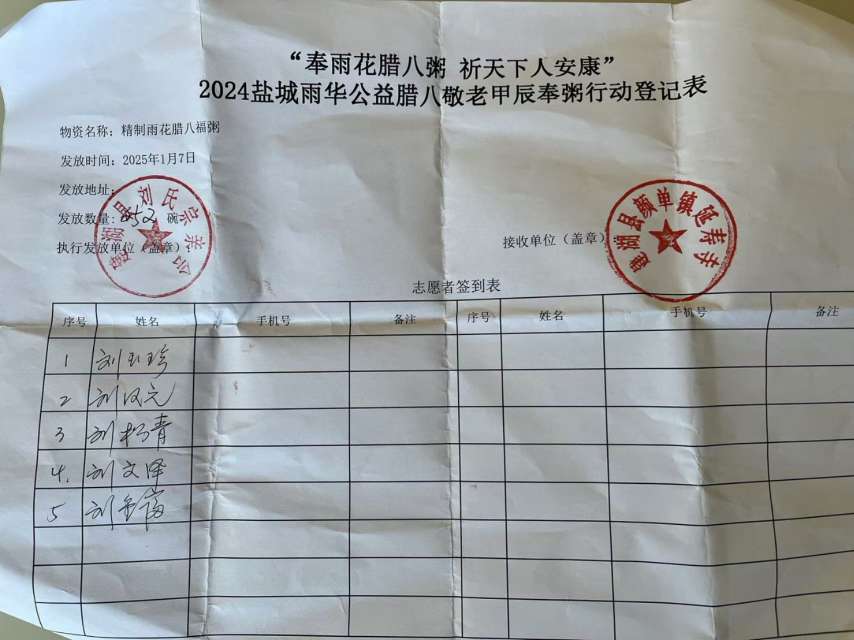 “奉雨花腊八粥 祈天下人安康”
2024盐城雨华公益腊八敬老甲辰奉粥行动登记表
物资名称：精制雨花腊八福粥
发放时间：2025年1月7日
发放地址：
发放数量：252 碗
执行发放单位（盖章）：
接收单位（盖章）：
建湖县刘氏宗亲会
建湖县颜单镇延寿寺
志愿者签到表
序号 姓名 手机号 备注 序号 姓名 手机号 备注
1 刘玉珍
2 刘汉元
3 刘杨青
4. 刘文泽
5 刘金富